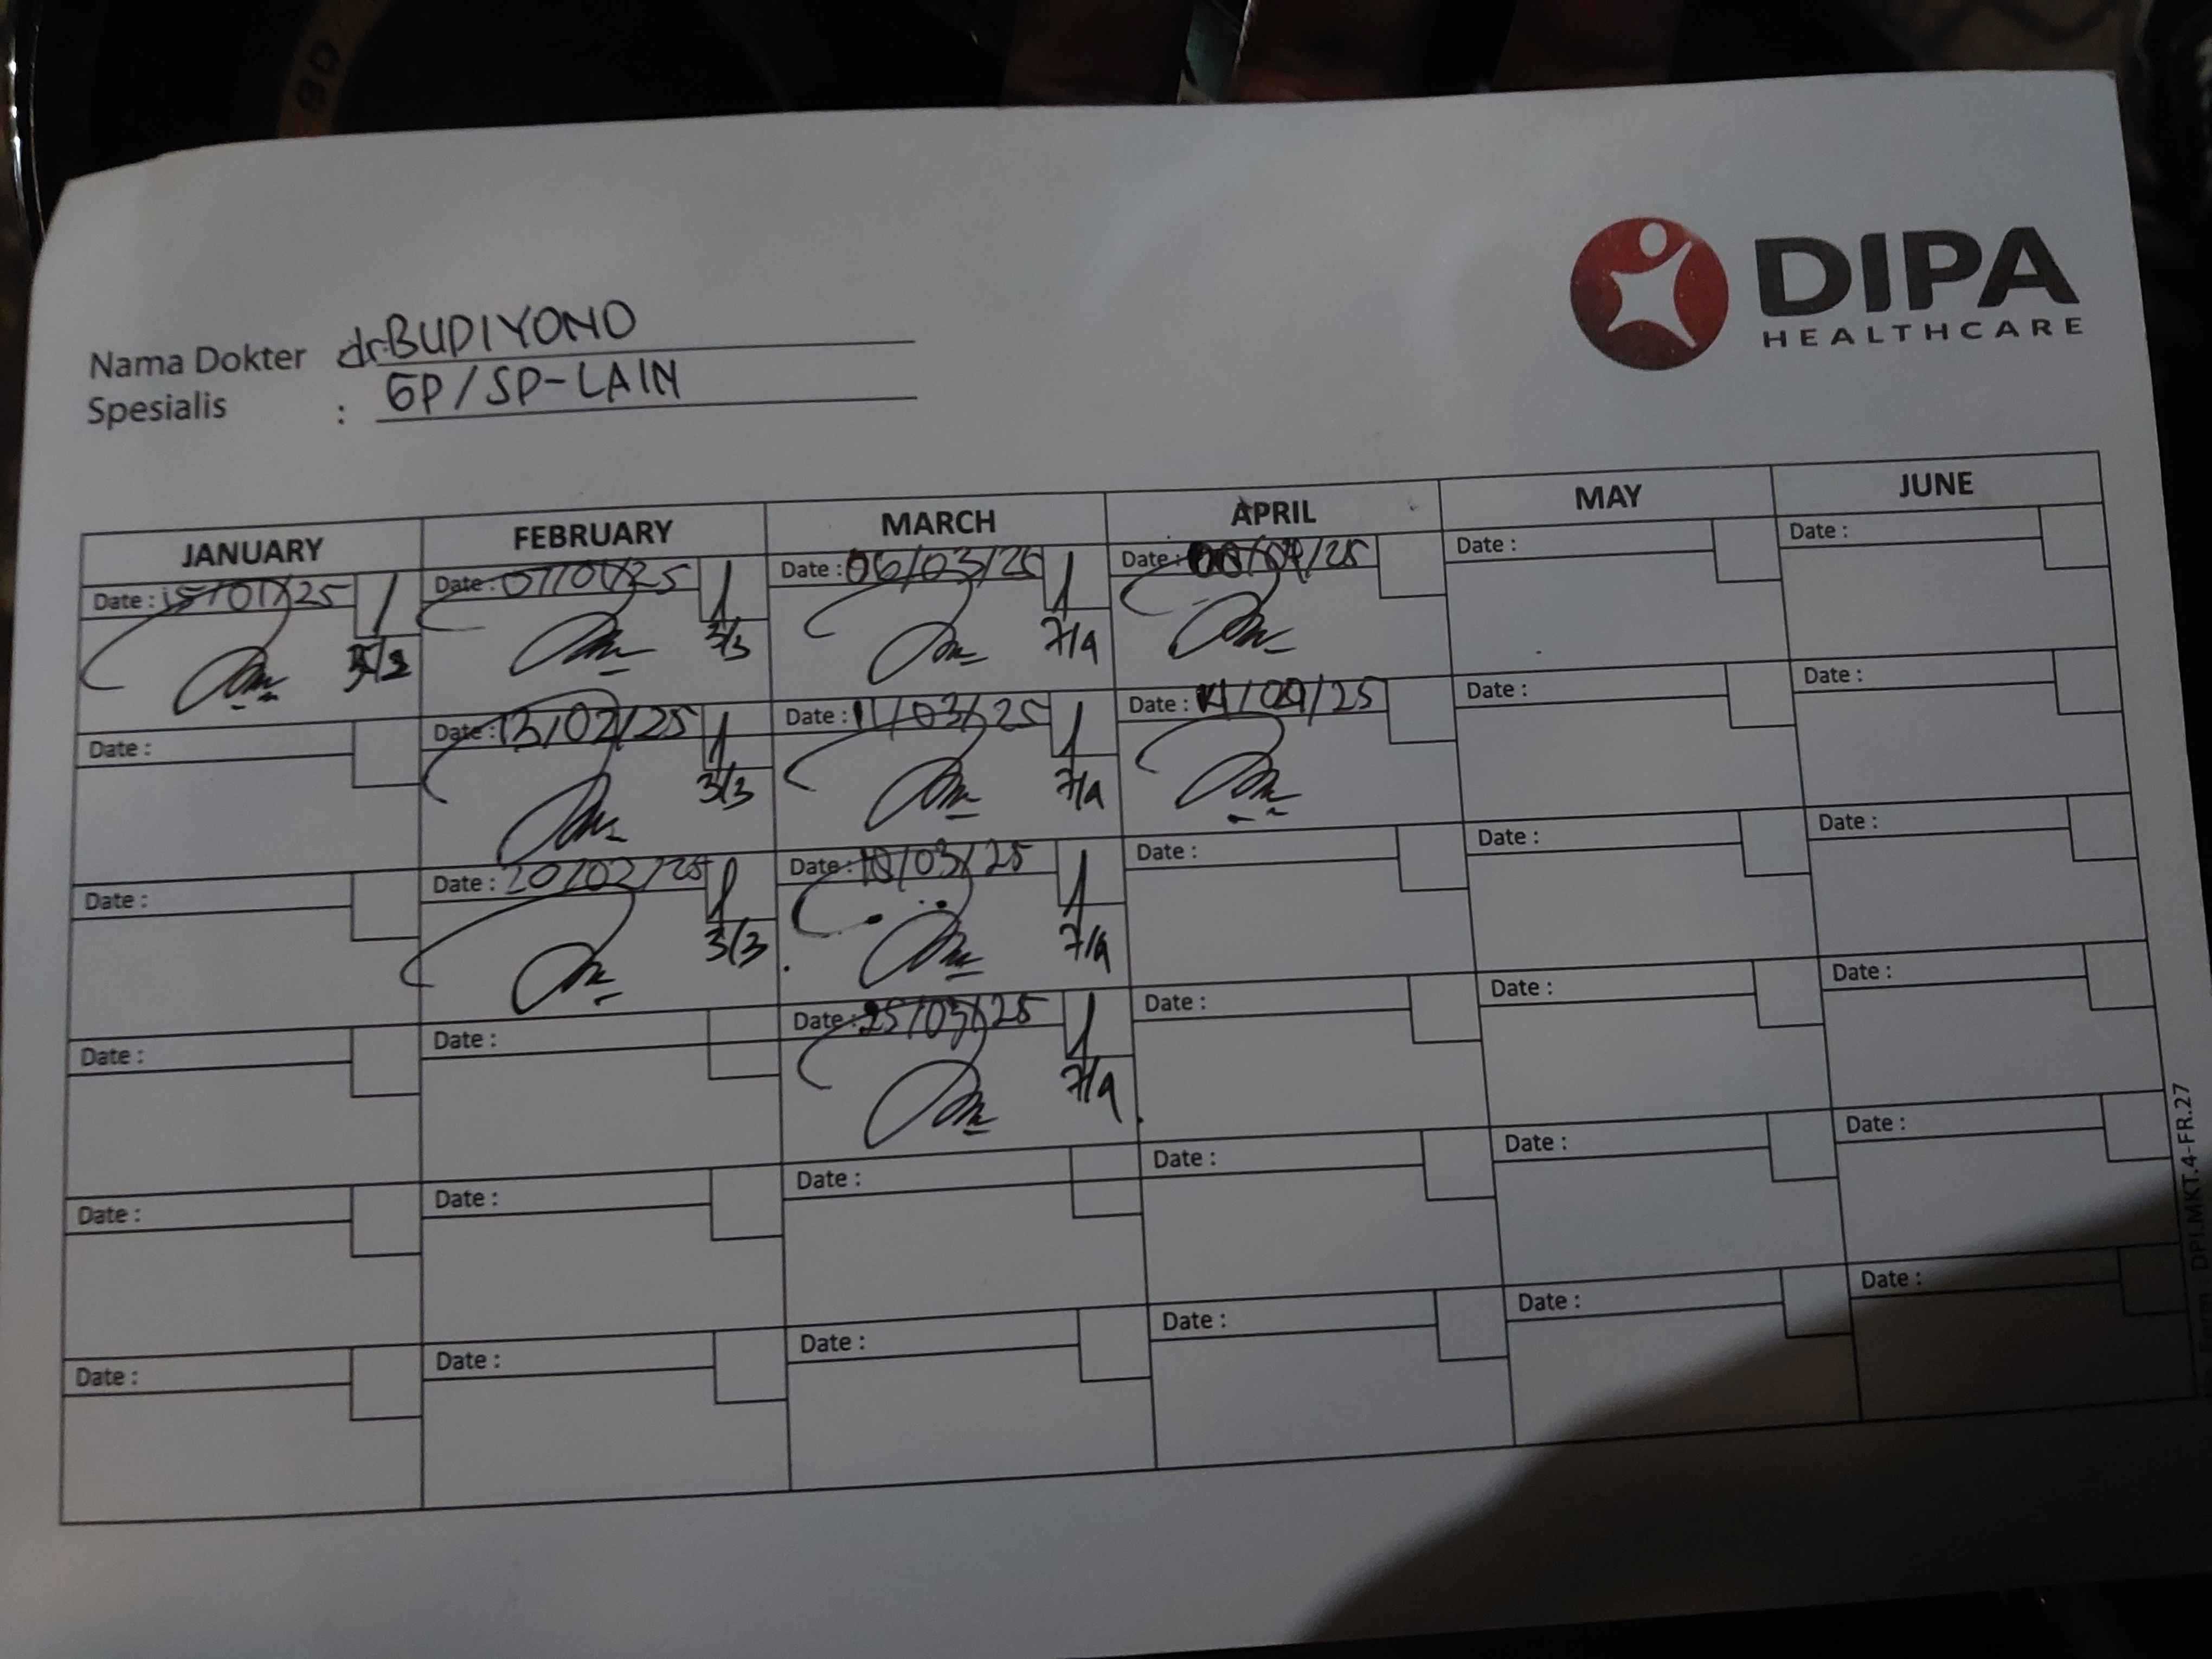 DIPA
HEALTHCARE
Nama Dokter dr. BUDIYONO
Spesialis : GP/SP-LAIN
JANUARY FEBRUARY MARCH APRIL MAY JUNE
Date : 15/01/25 Date : 07/0/25 Date : 06/03/25 Date : /04/25 Date : Date :
3/3 7/4
Date : Date : 13/02/25 Date : 11/03/25 Date : /04/25 Date : Date :
3/3 7/4
Date : Date : 20/02/25 Date : /03/25 Date : Date : Date :
3/3 7/4
Date : Date : Date : 25/03/25 Date : Date : Date :
7/4
Date : Date : Date : Date : Date : Date :
Date : Date : Date : Date : Date : Date :
DPI.MKT.4-FR.27